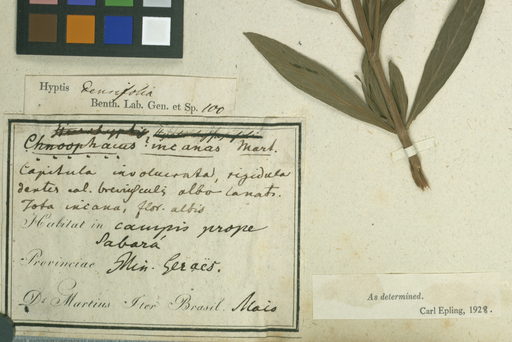 Hyptis densifolia
Benth. Lab. Gen. et Sp. 100
incanas Mart.
Capitula involucrata, rigidula
dentes cal. albo lanat.
Tota incana, flor. albis
Habitat in campis prope
Sabará
Provinciae Min. Geraës.
Dr Martius Iter Brasil. Maio
As determined.
Carl Epling, 1928.